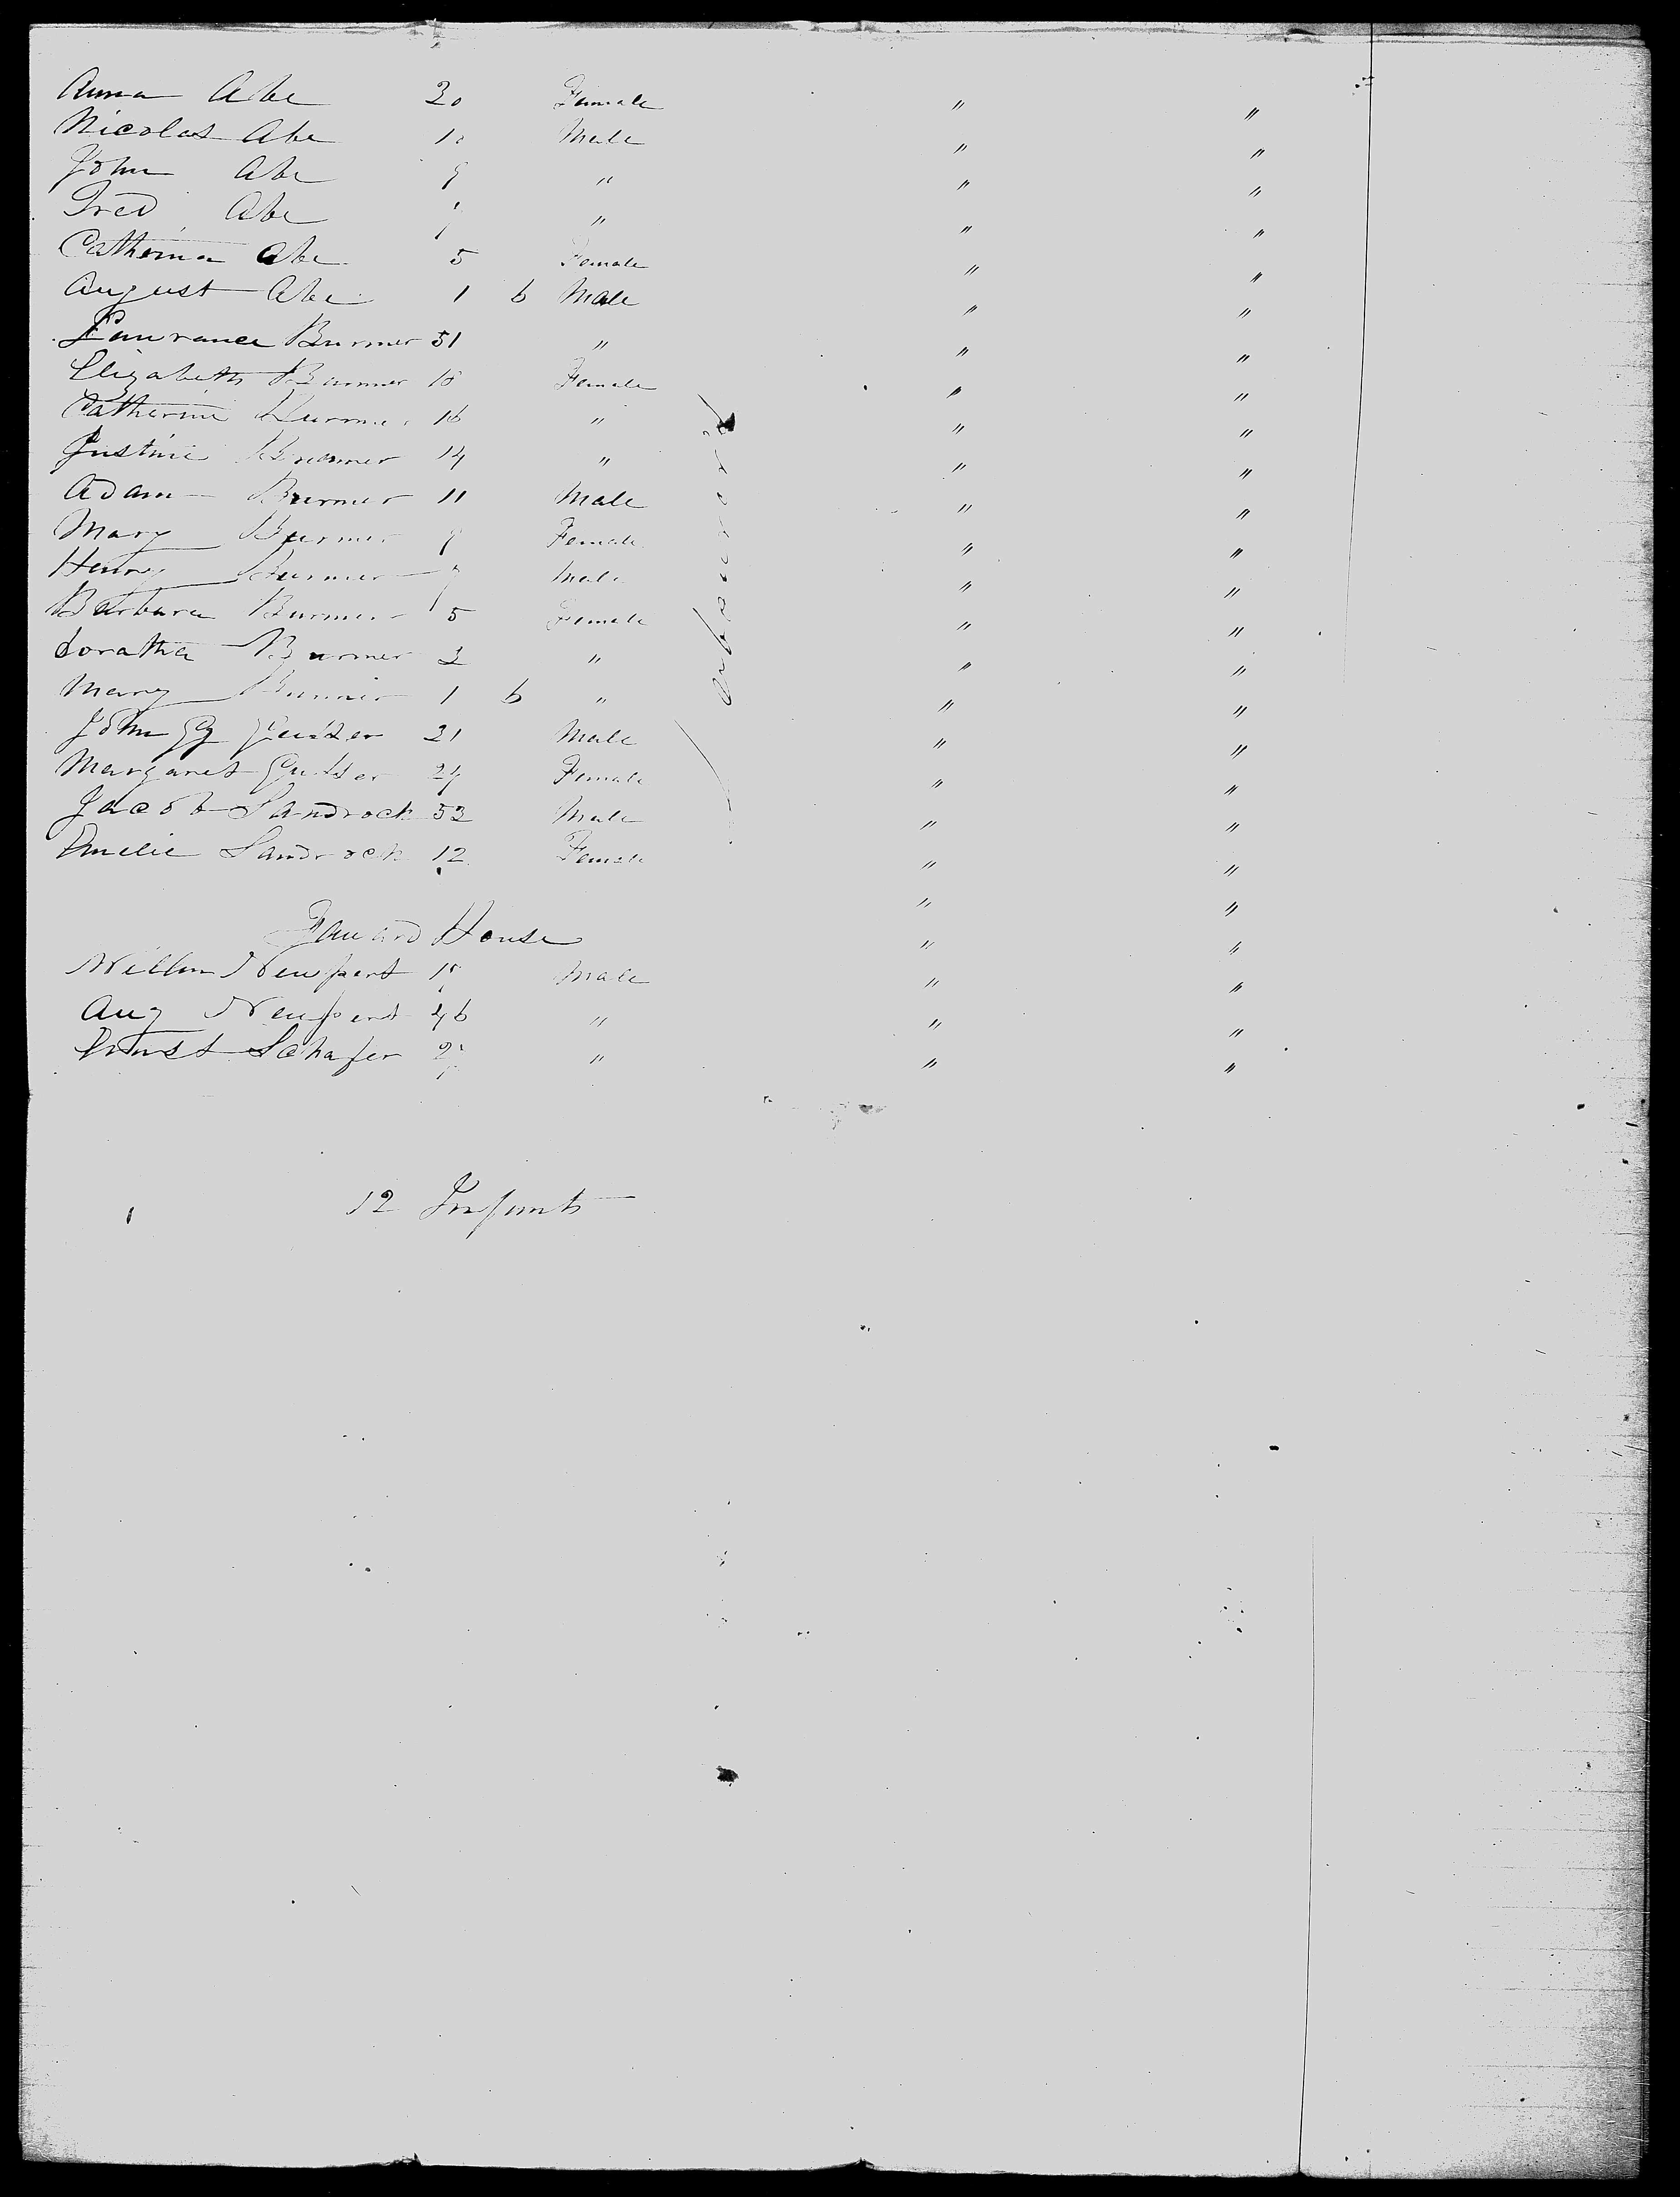 Anna Abe 30 Female " "
Nicolas Abe Male " "
John Abe 9 " " "
Fred Abe 7 " " "
Catherina Abe 5 Female " "
August Abe 1 6 Male " "
Laurance Burmer 51 " " "
Elizabeth Burmer 18 Female " "
Catherine Burmer 16 " " "
Justine Burmer 14 " " "
Adam Burmer 11 Male " "
Mary Burmer 9 Female " "
Henry Burmer 7 Male " "
Barbara Burmer 5 Female " "
Doratha Burmer 3 " " "
Mary Burmer 1 6 " " "
John Male " "
Margaret 24 Female " "
Jacob Sandrock 53 Male " "
Emelie Sandrock 12 Female " "
" "
House " "
Newpert Male " "
Aug Neupert 46 " " "
Ernst Schafer " " "
12 Infants